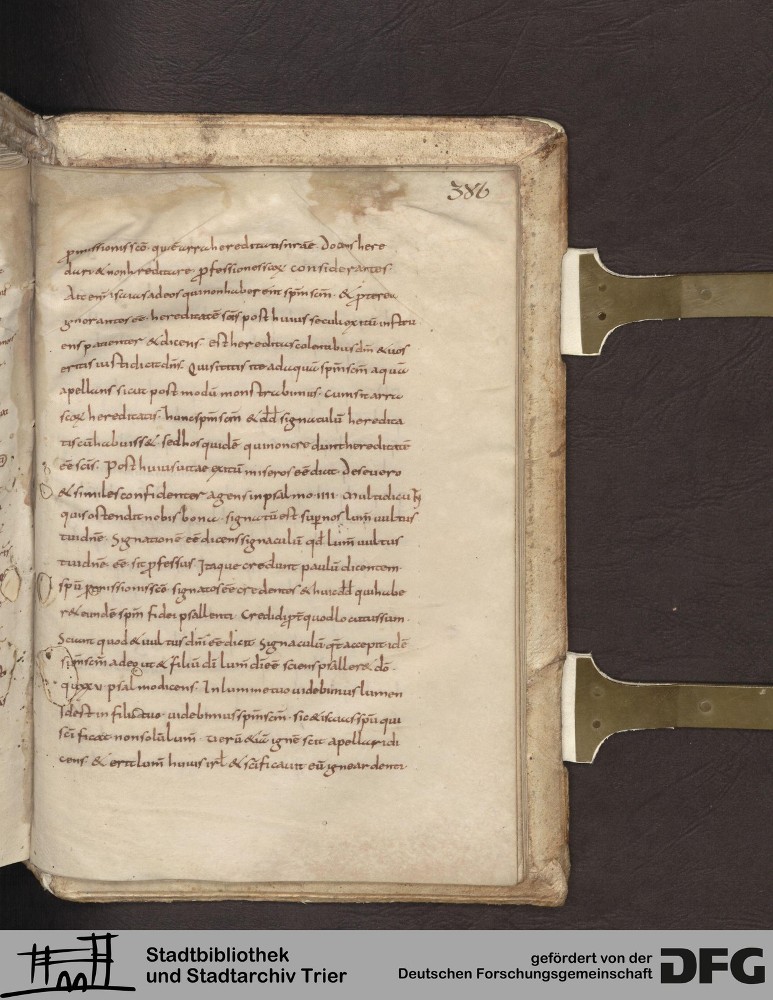 386
p̱missionis scō · que arra hereditatis nrāe · Docens here
dari & non hereditare · ꝓfessiones scoꝝ considerantes ·
Ait enī isaias adeos qui non haberent spm̄ scm̄ · & p̱terea
ignorantes eē · hereditatē scis post huius seculi exitū instru
ens patienter & dicens · est hereditas colentibus dn̄m & uos
eritis iusti dicit dn̄s ·
apellans sicut post modū monstrabimus · Cum sit arra
scoꝝ hereditatis · hunc spm̄ scm̄ & dd̄ signaculū heredita
tis cū habuisse & · sed hos quidē qui non credunt hereditatē
eē scis · Post huius uitae exitū miseros eē dicit · Deseuero
& similes confidenter agens in psalmo · IIII · Multi dicunt
quis ostendit nobis bona · signatū est sup nos lum̄ uultus
tui dn̄e · Signatione eē dicens signaculū qd̄ lum̄ uultus
tui dn̄e · eē sit ꝓfessus · Itaque credunt paulū dicentem
spū p̱missionis scō signatos eē credentes & huic dd̄ qui habe
r& eundē spm̄ fidei psallenti · Credidi ꝓt quod locutus sum ·
Sciunt quod & uultus dn̄i eē dicit signaculū q̄ accepit idē
spm̄ scm̄ adeo ut & filiū dī lum̄ dī eē sciens psaller& dō ·
· xxxv · psalmo dicens · In lumine tuo uidebimus lumen
Id est in filio tuo · uidebimus spm̄ scm̄ · sic & isaias spū qui
scīficat non solū lum̄ · uerū &iā ignē scit apellari di
cens · & erit lum̄ huius isrl̄ & scīficauit eū igne ardenti ·
Stadtbibliothek
und Stadtarchiv Trier
gefördert von der
Deutschen Forschungsgemeinschaft
DFG